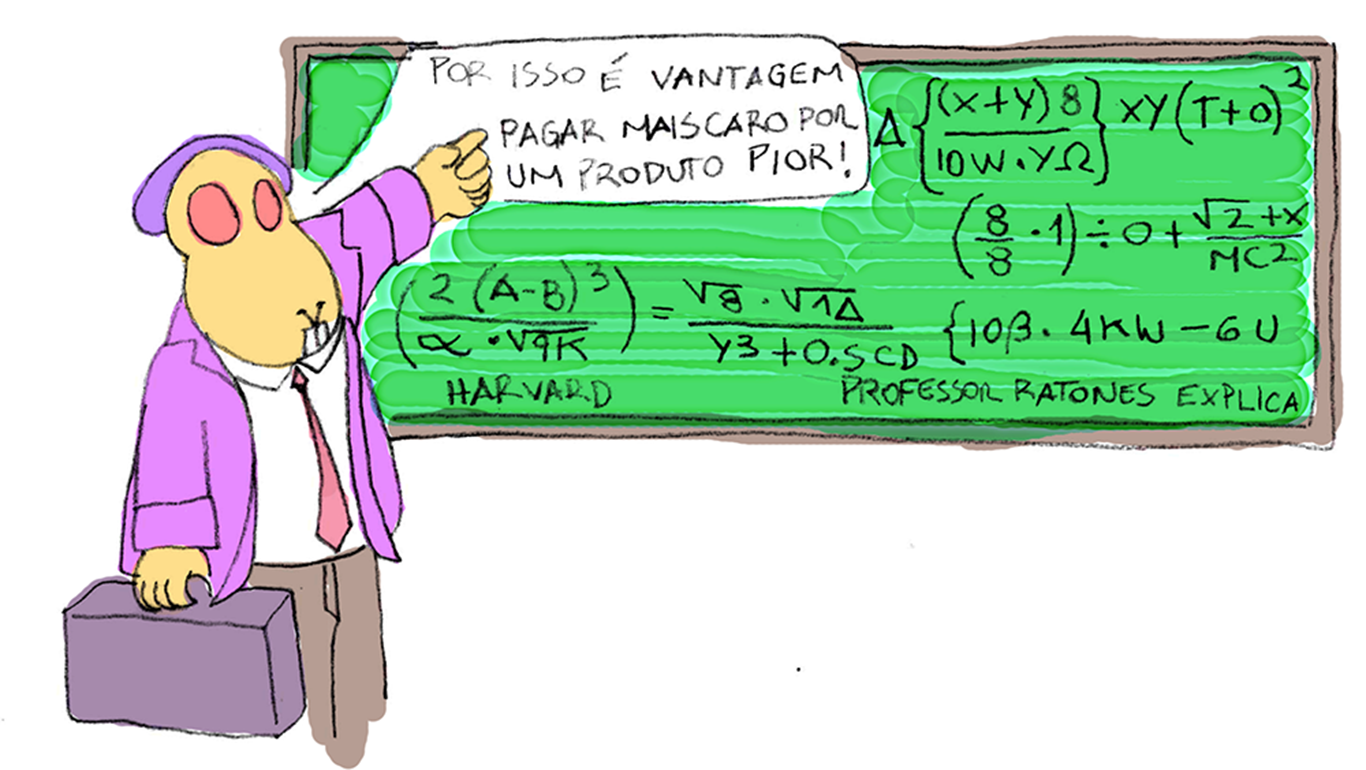 POR ISSO É VANTAGEM
PAGAR MAIS CARO POR
UM PRODUTO PIOR!
Δ {(X+Y)8 / 10W.YΩ} XY(T+0)²
(8/8 · 1) ÷ 0 + √2+X / MC2
(2(A-B)³ / α·√9K) = √8·√1Δ / Y3+0.5CD
{10β. 4KW-6U
HARVARD
PROFESSOR RATONES EXPLICA